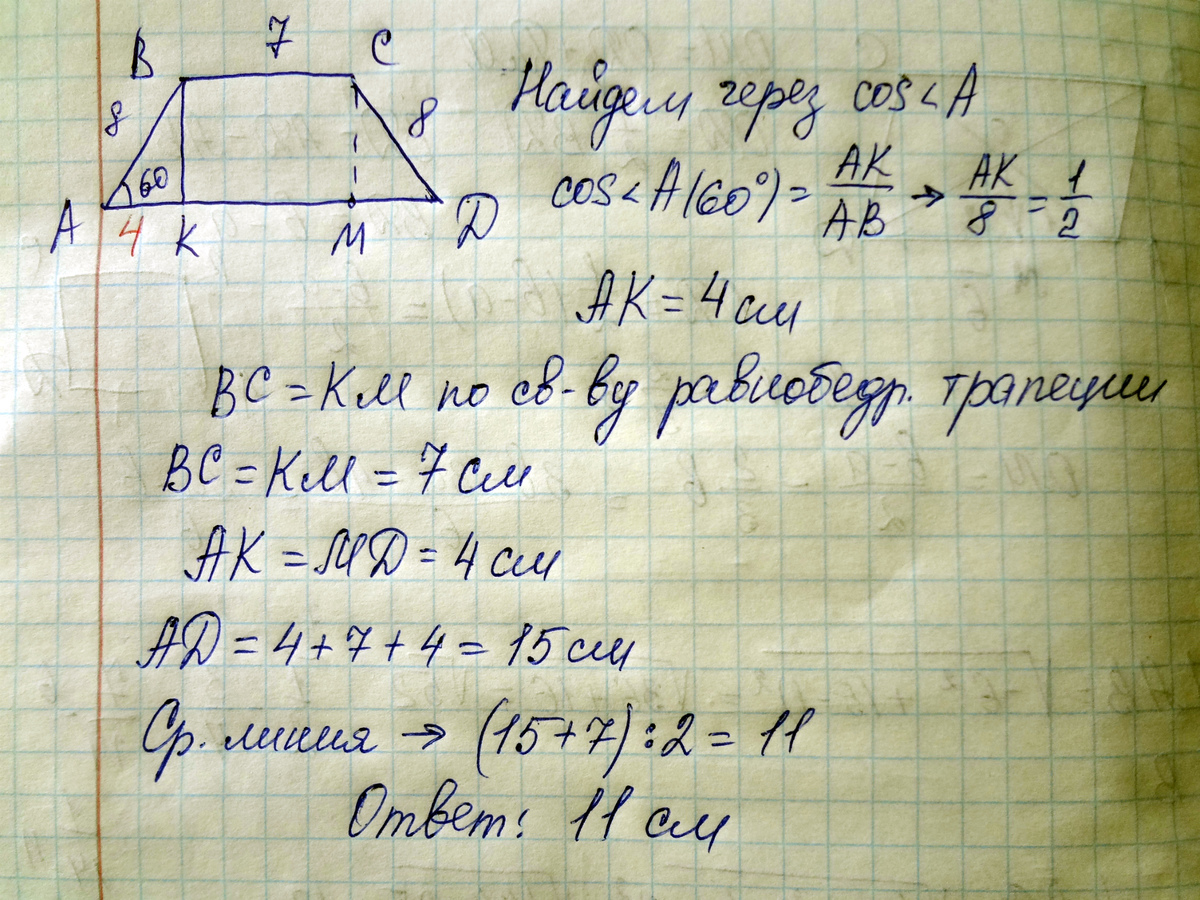 7
B C
8 8
60
A 4 K M D
Найдем через cos<A
cos<A(60°)= AK/AB → AK/8 = 1/2
AK = 4 см
BC = KM по св-ву равнобедр. трапеции
BC = KM = 7 см
AK = MD = 4 см
AD = 4 + 7 + 4 = 15 см
Ср. линия → (15+7):2 = 11
Ответ: 11 см